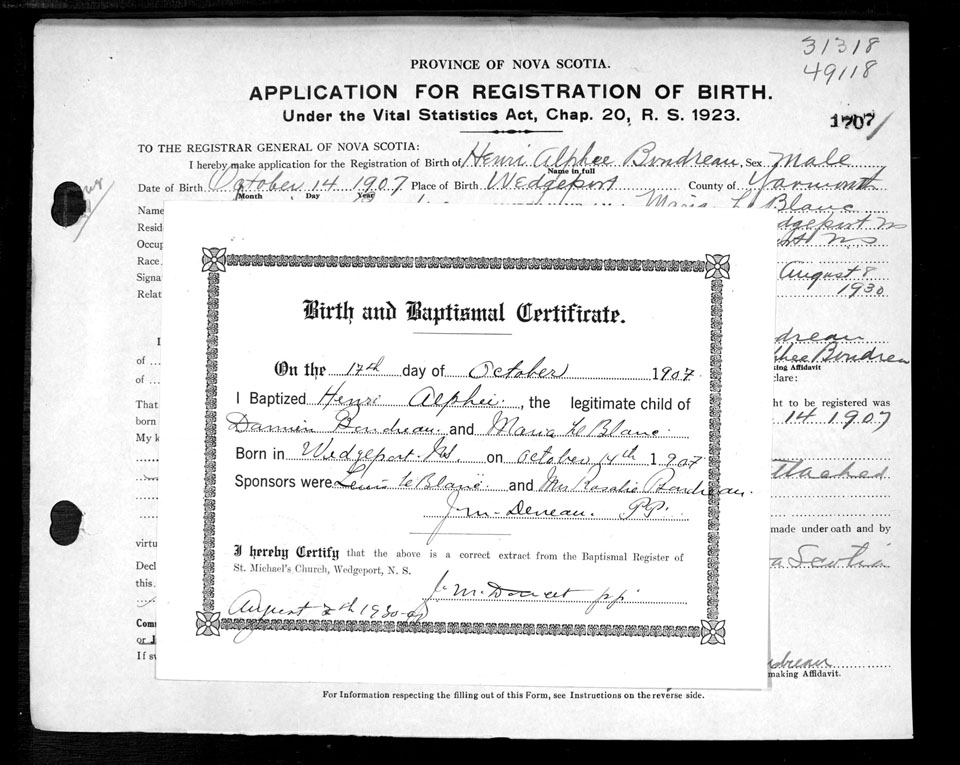 31318
49118
PROVINCE OF NOVA SCOTIA.
APPLICATION FOR REGISTRATION OF BIRTH.
Under the Vital Statistics Act, Chap. 20, R. S. 1923.
1707
TO THE REGISTRAR GENERAL OF NOVA SCOTIA:
I hereby make application for the Registration of Birth of Henri Alphee Boudreau Sex Male
Name in full
Date of Birth October 14 1907 Place of Birth Wedgeport County of Yarmouth
Month Day Year
Name Maria Le Blanc
Resid dgeport NS
Occup NS
Race
Signa August 8
Relat 1930
Birth and Baptismal Certificate.
On the 17th day of October 1907
I Baptized Henri Alphée, the legitimate child of
Damien Boudreau and Maria LeBlanc
Born in Wedgeport NS. on October 14th 1907
Sponsors were Louis LeBlanc and Mrs Rosalie Boudreau.
P.P.
I hereby Certify that the above is a correct extract from the Baptismal Register of
St. Michael's Church, Wedgeport, N. S.
pp
August 1930
I dreau
of phee Boudreau
king Affidavit
of clare:
That ht to be registered was
born 14 1907
My k
ttached
made under oath and by
virtu
Decl a Scotia
this
Com
or J
If sw dreau
making Affidavit.
For Information respecting the filling out of this Form, see Instructions on the reverse side.